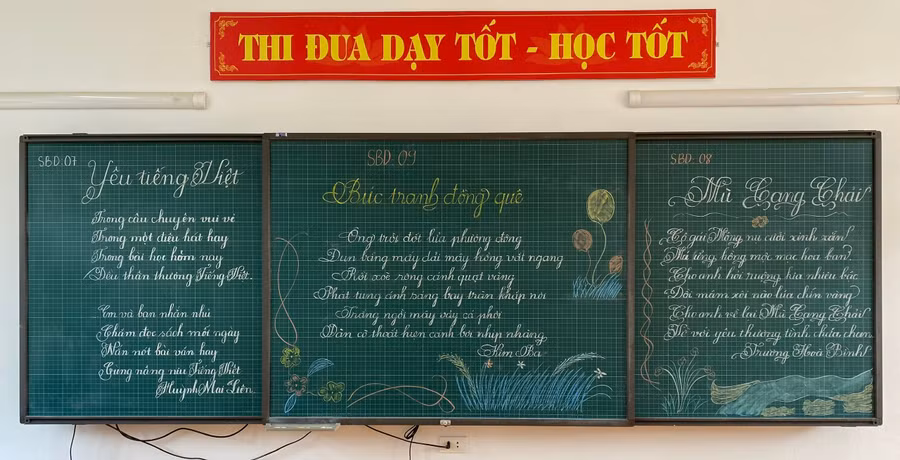 THI ĐUA DẠY TỐT - HỌC TỐT
SBD:07
Yêu tiếng Việt
Trong câu chuyện vui vẻ
Trong một điệu hát hay
Trong bài học hôm nay
Đều thân thương Tiếng Việt.
Em và bạn nhắn nhủ
Chăm đọc sách mỗi ngày
Nắn nót bài văn hay
Cùng nâng niu Tiếng Việt
Huỳnh Mai Liên
SBD. 09
Bức tranh đồng quê
Ông trời đốt lửa phương đông
Đun bảng mây dài mây hồng vắt ngang
Phơi xoè rộng cánh quạt vàng
Phạt tung ánh sáng bay tràn khắp nơi
Thảng ngồi mây váy cá phơi
Đàn cò thoát lượn cánh bơi nhịp nhàng.
Kim Ba
SBD. 08
Mù Cang Chải
Cô gái Mông nụ cười xinh xắn!
Má ửng hồng mộc mạc hoa ban?
Cho anh hỏi ruộng kia nhiêu bậc
Đồi mâm xôi nào lúa chín vàng?
Cho anh về lại Mù Cang Chải
Về với yêu thương tình chứa chan
Trương Hoà Bình